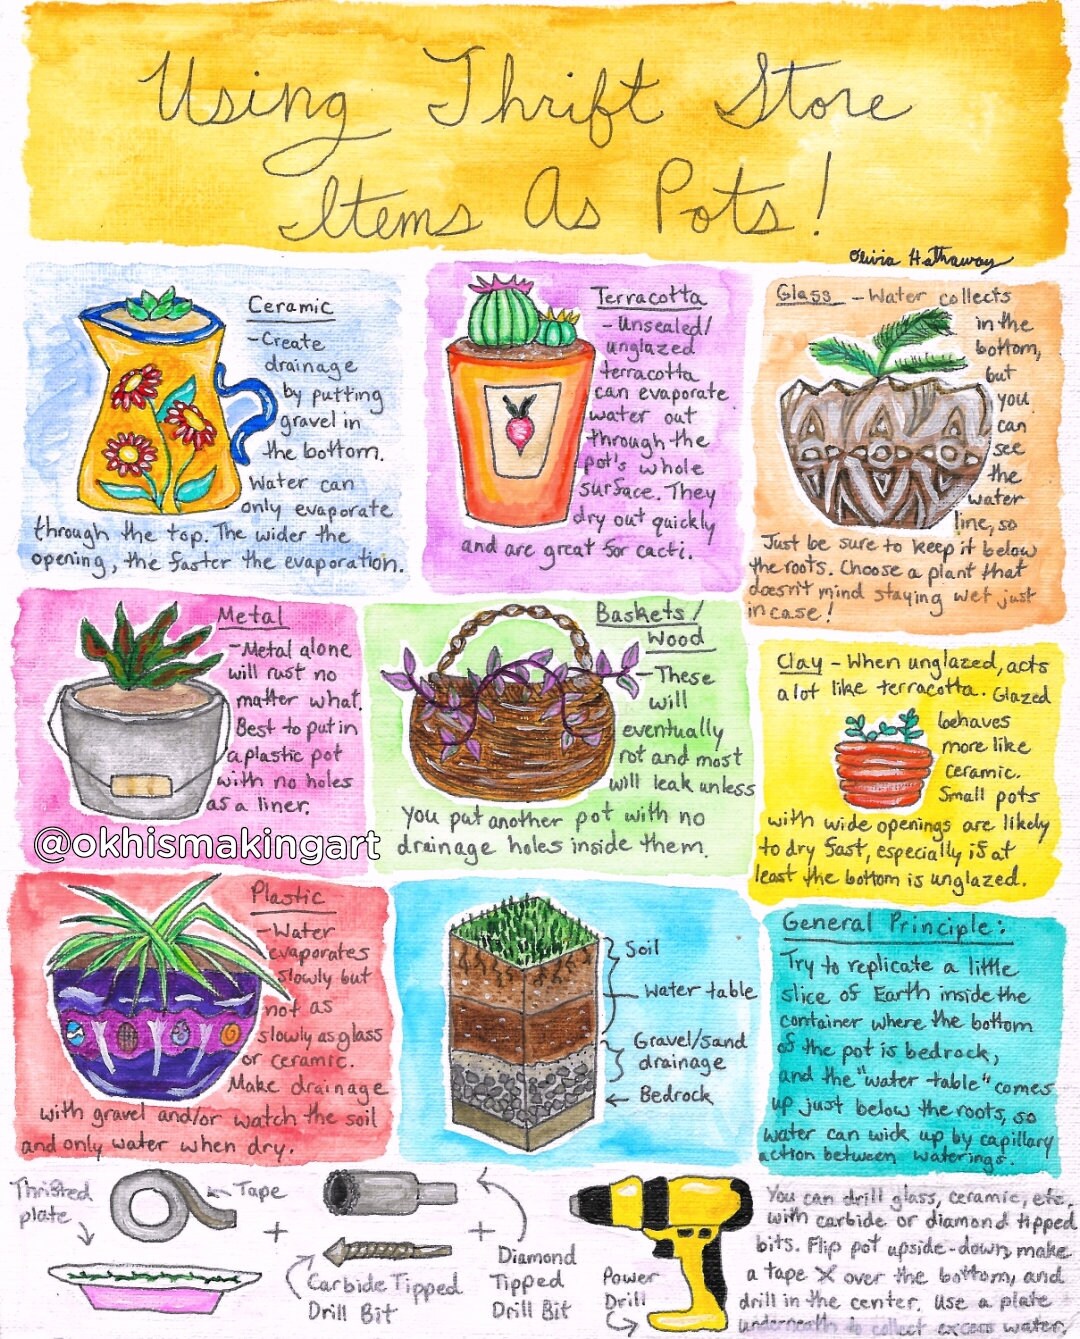 Using Thrift Store
Items As Pots!
Olivia Hathaway
Ceramic
- Create
drainage
by putting
gravel in
the bottom.
Water can
only evaporate
through the top. The wider the
opening, the faster the evaporation.
Terracotta
- Unsealed/
unglazed
terracotta
can evaporate
water out
through the
pot's whole
surface. They
dry out quickly
and are great for cacti.
Glass - Water collects
in the
bottom,
but
you
can
see
the
water
line, so
Just be sure to keep it below
the roots. Choose a plant that
doesn't mind staying wet just
in case!
Metal
- Metal alone
will rust no
matter what.
Best to put in
a plastic pot
with no holes
as a liner.
@okhismakingart
Baskets/
Wood
- These
will
eventually
rot and most
will leak unless
you put another pot with no
drainage holes inside them.
Clay - When unglazed, acts
a lot like terracotta. Glazed
behaves
more like
ceramic.
Small pots
with wide openings are likely
to dry fast, especially if at
least the bottom is unglazed.
Plastic
- Water
evaporates
slowly but
not as
slowly as glass
or ceramic.
Make drainage
with gravel and/or watch the soil
and only water when dry.
Soil
Water table
Gravel/sand
drainage
Bedrock
General Principle:
Try to replicate a little
slice of Earth inside the
container where the bottom
of the pot is bedrock,
and the "water table" comes
up just below the roots, so
water can wick up by capillary
action between waterings.
Thrifted
plate
Tape
+
Carbide Tipped
Drill Bit
+
Diamond
Tipped
Drill Bit
Power
Drill
You can drill glass, ceramic, etc.
with carbide or diamond tipped
bits. Flip pot upside-down, make
a tape X over the bottom, and
drill in the center. Use a plate
underneath to collect excess water.